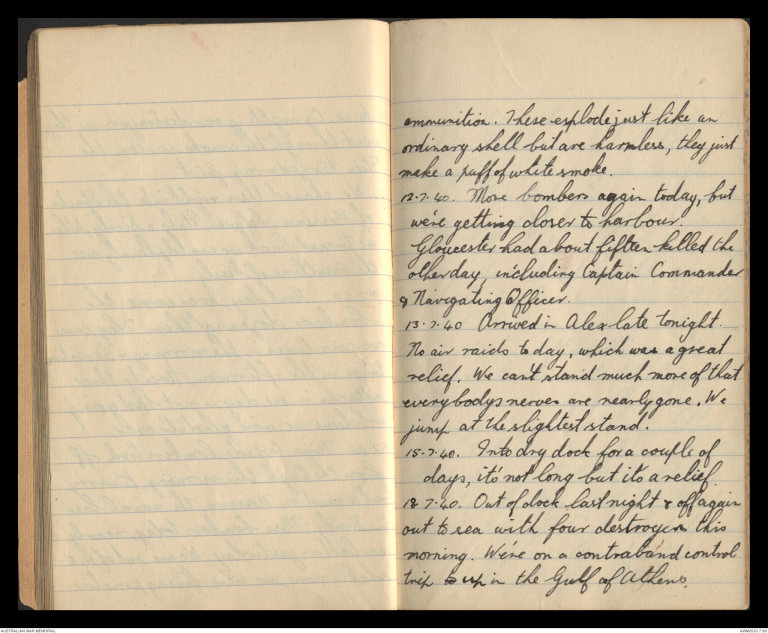 ammunition. These explode just like an
ordinary shell but are harmless, they just
make a puff of white smoke.
12.7.40. More bombers again today, but
we're getting closer to harbour.
Gloucester had about fifteen killed the
other day, including Captain Commander
& Navigating Officer.
13.7.40 Arrived in Alex late tonight.
No air raids today, which was a great
relief. We can't stand much more of that
everybodys nerves are nearly gone. We
jump at the slightest stand.
15.7.40. Into dry dock for a couple of
days, it's not long but it's a relief.
18.7.40. Out of dock last night & off again
out to sea with four destroyers this
morning. We're on a contraband control
trip up in the Gulf of Athens.
AUSTRALIAN WAR MEMORIAL